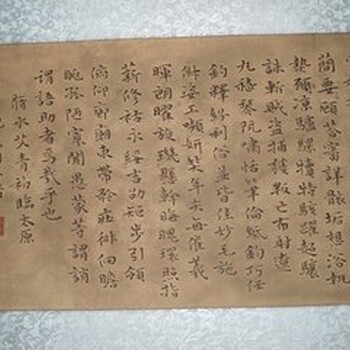 簡要顧答審詳骸垢想浴執
熱願涼驢騾犢特駭躍超驤
誅斬賊盜捕獲叛亡布射遼
丸嵇琴阮嘯恬筆倫紙鈞巧任
釣釋紛利俗並皆佳妙毛施
淑姿工顰妍笑年矢每催羲
暉朗曜旋璣懸斡晦魄環照指
薪修祜永綏吉劭矩步引領
俯仰廊廟束帶矜莊徘徊瞻
眺孤陋寡聞愚蒙等謂誚
謂語助者焉哉乎也
臨太原